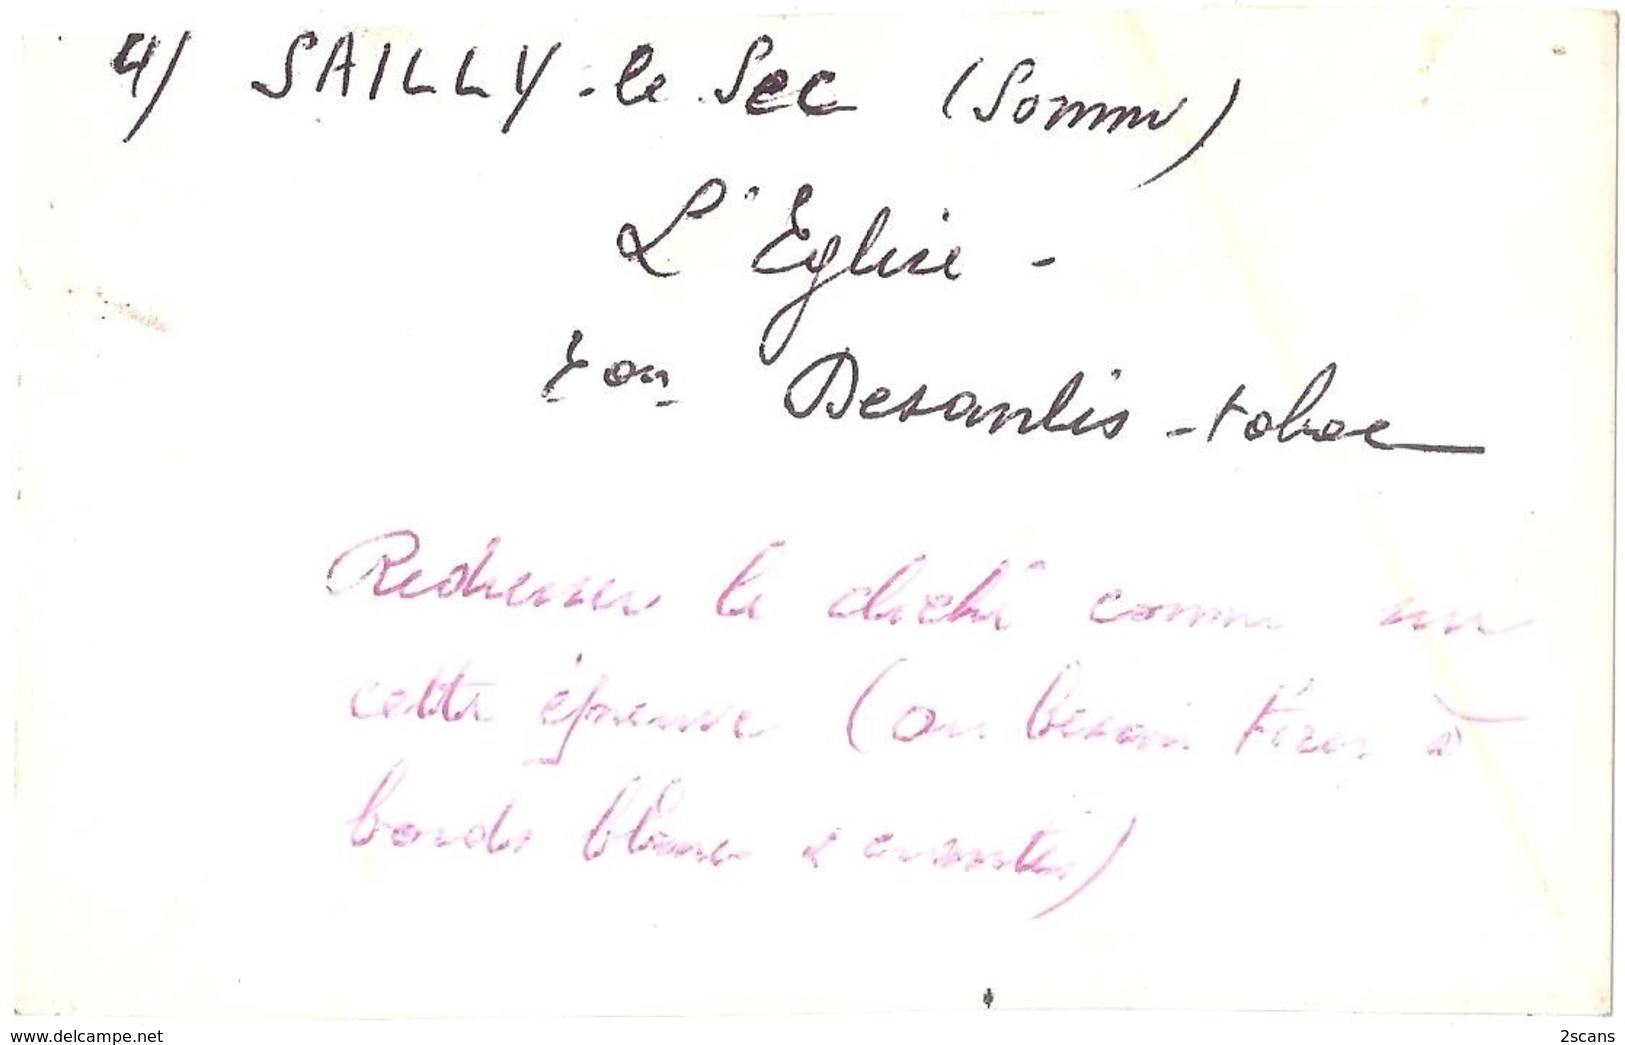 4/ SAILLY-le Sec (Somme)
L'Eglise -
Eon Desantis - tabac
Redresser le cliché comme sur
cette épreuve (au besoin tirer à
bords blancs & crantés)
www.delcampe.net
2scans